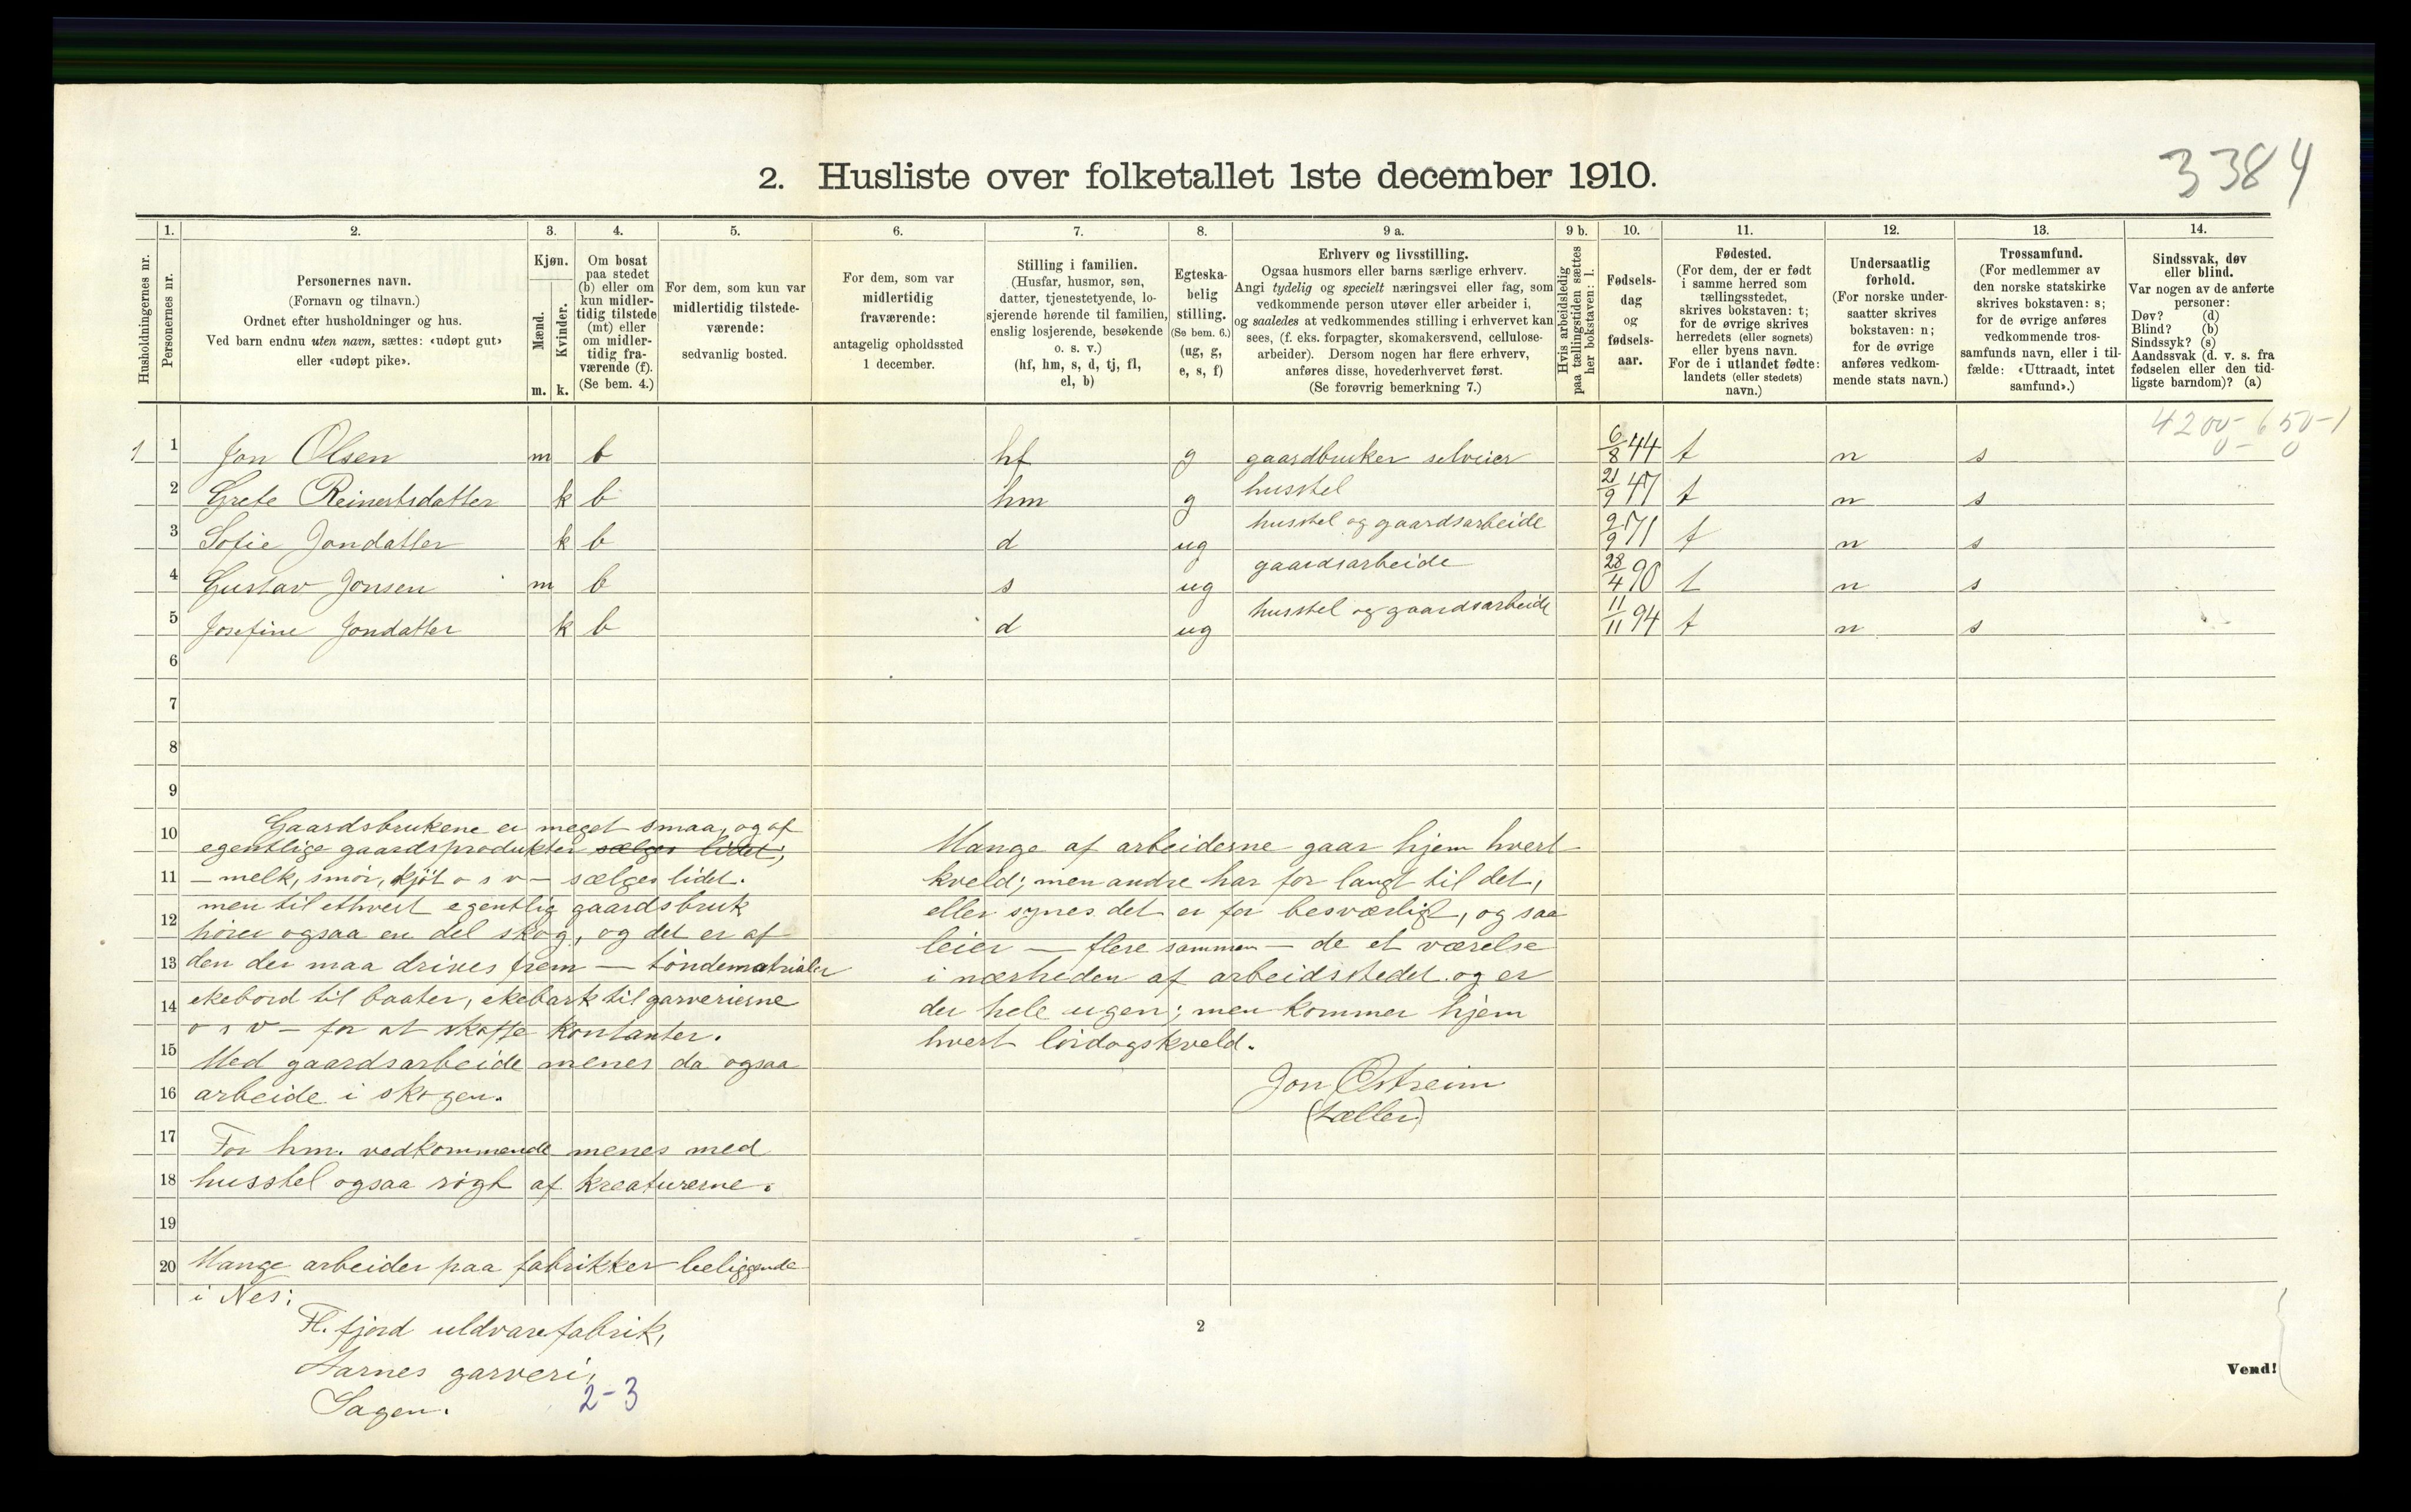 2. Husliste over folketallet 1ste december 1910.
3384
Husholdningernes nr.
1.
Personernes nr.
2.
Personernes navn.
(Fornavn og tilnavn.)
Ordnet efter husholdninger og hus.
Ved barn endnu uten navn, sættes: «udøpt gut»
eller «udøpt pike».
3.
Kjøn.
Mænd.
Kvinder.
m. k.
4.
Om bosat
paa stedet
(b) eller om
kun midler-
tidig tilstede
(mt) eller
om midler-
tidig fra-
værende (f).
(Se bem. 4.)
5.
For dem, som kun var
midlertidig tilstede-
værende:
sedvanlig bosted.
6.
For dem, som var
midlertidig
fraværende:
antagelig opholdssted
1 december.
7.
Stilling i familien.
(Husfar, husmor, søn,
datter, tjenestetyende, lo-
sjerende hørende til familien,
enslig losjerende, besøkende
o. s. v.)
(hf, hm, s, d, tj, fl,
el, b)
8.
Egteska-
belig
stilling.
(Se bem. 6.)
(ug, g,
e, s, f)
9 a.
Erhverv og livsstilling.
Ogsaa husmors eller barns særlige erhverv.
Angi tydelig og specielt næringsvei eller fag, som
vedkommende person utøver eller arbeider i,
og saaledes at vedkommendes stilling i erhvervet kan
sees, (f. eks. forpagter, skomakersvend, cellulose-
arbeider). Dersom nogen har flere erhverv,
anføres disse, hovederhvervet først.
(Se forøvrig bemerkning 7.)
9 b.
Hvis arbeidsledig
paa tællingstiden sættes
her bokstaven: l.
10.
Fødsels-
dag
og
fødsels-
aar.
11.
Fødested.
(For dem, der er født
i samme herred som
tællingsstedet,
skrives bokstaven: t;
for de øvrige skrives
herredets (eller sognets)
eller byens navn.
For de i utlandet fødte:
landets (eller stedets)
navn.)
12.
Undersaatlig
forhold.
(For norske under-
saatter skrives
bokstaven: n;
for de øvrige
anføres vedkom-
mende stats navn.)
13.
Trossamfund.
(For medlemmer av
den norske statskirke
skrives bokstaven: s;
for de øvrige anføres
vedkommende tros-
samfunds navn, eller i til-
fælde: «Uttraadt, intet
samfund».)
14.
Sindssvak, døv
eller blind.
Var nogen av de anførte
personer:
Døv? (d)
Blind? (b)
Sindssyk? (s)
Aandssvak (d. v. s. fra
fødselen eller den tid-
ligste barndom)? (a)
4200-650-1
0-0
1 1 Jon Olsen m b hf g gaardbruker selveier 6/8 44 t n s
2 Grete Reinertsdatter k b hm g husstel 21/9 47 t n s
3 Sofie Jondatter k b d ug husstel og gaardsarbeide t n s
4 Gustav Jonsen m b s ug gaardsarbeide 28/4 90 t n s
5 Josefine Jondatter k b d ug husstel og gaardsarbeide 11/11 94 t n s
6
7
8
9
10
11
12
13
14
15
16
17
18
19
20
Gaardsbrukene er meget smaa, og af
egentlige gaardsprodukter sælges lidet;
– melk, smör, kjöt o s v – sælges lidet.
men til ethvert egentlig gaardsbruk
hörer ogsaa en del skog, og det er af
den der maa drives frem – töndematrialer
ekebord til baater, ekebark til garverierne
o s v – for at skaffe kontanter.
Med gaardsarbeide menes da ogsaa
arbeide i skogen.
For hm. vedkommende menes med
husstel ogsaa rögt af kreaturerne.
Mange arbeider paa fabrikker beliggende
i Nes:
Fl. fjord uldvarefabrik,
Aarnes garveri,
Sagen.
2-3
Mange af arbeiderne gaar hjem hvert
kveld; men andre har for langt til det,
eller synes det er for besværligt, og saa
leier – flere sammen – de et værelse
i nærheden af arbeidsstedet og er
der hele ugen; men kommer hjem
hvert lördagskveld.
Jon Östreim
(tæller)
2
Vend!